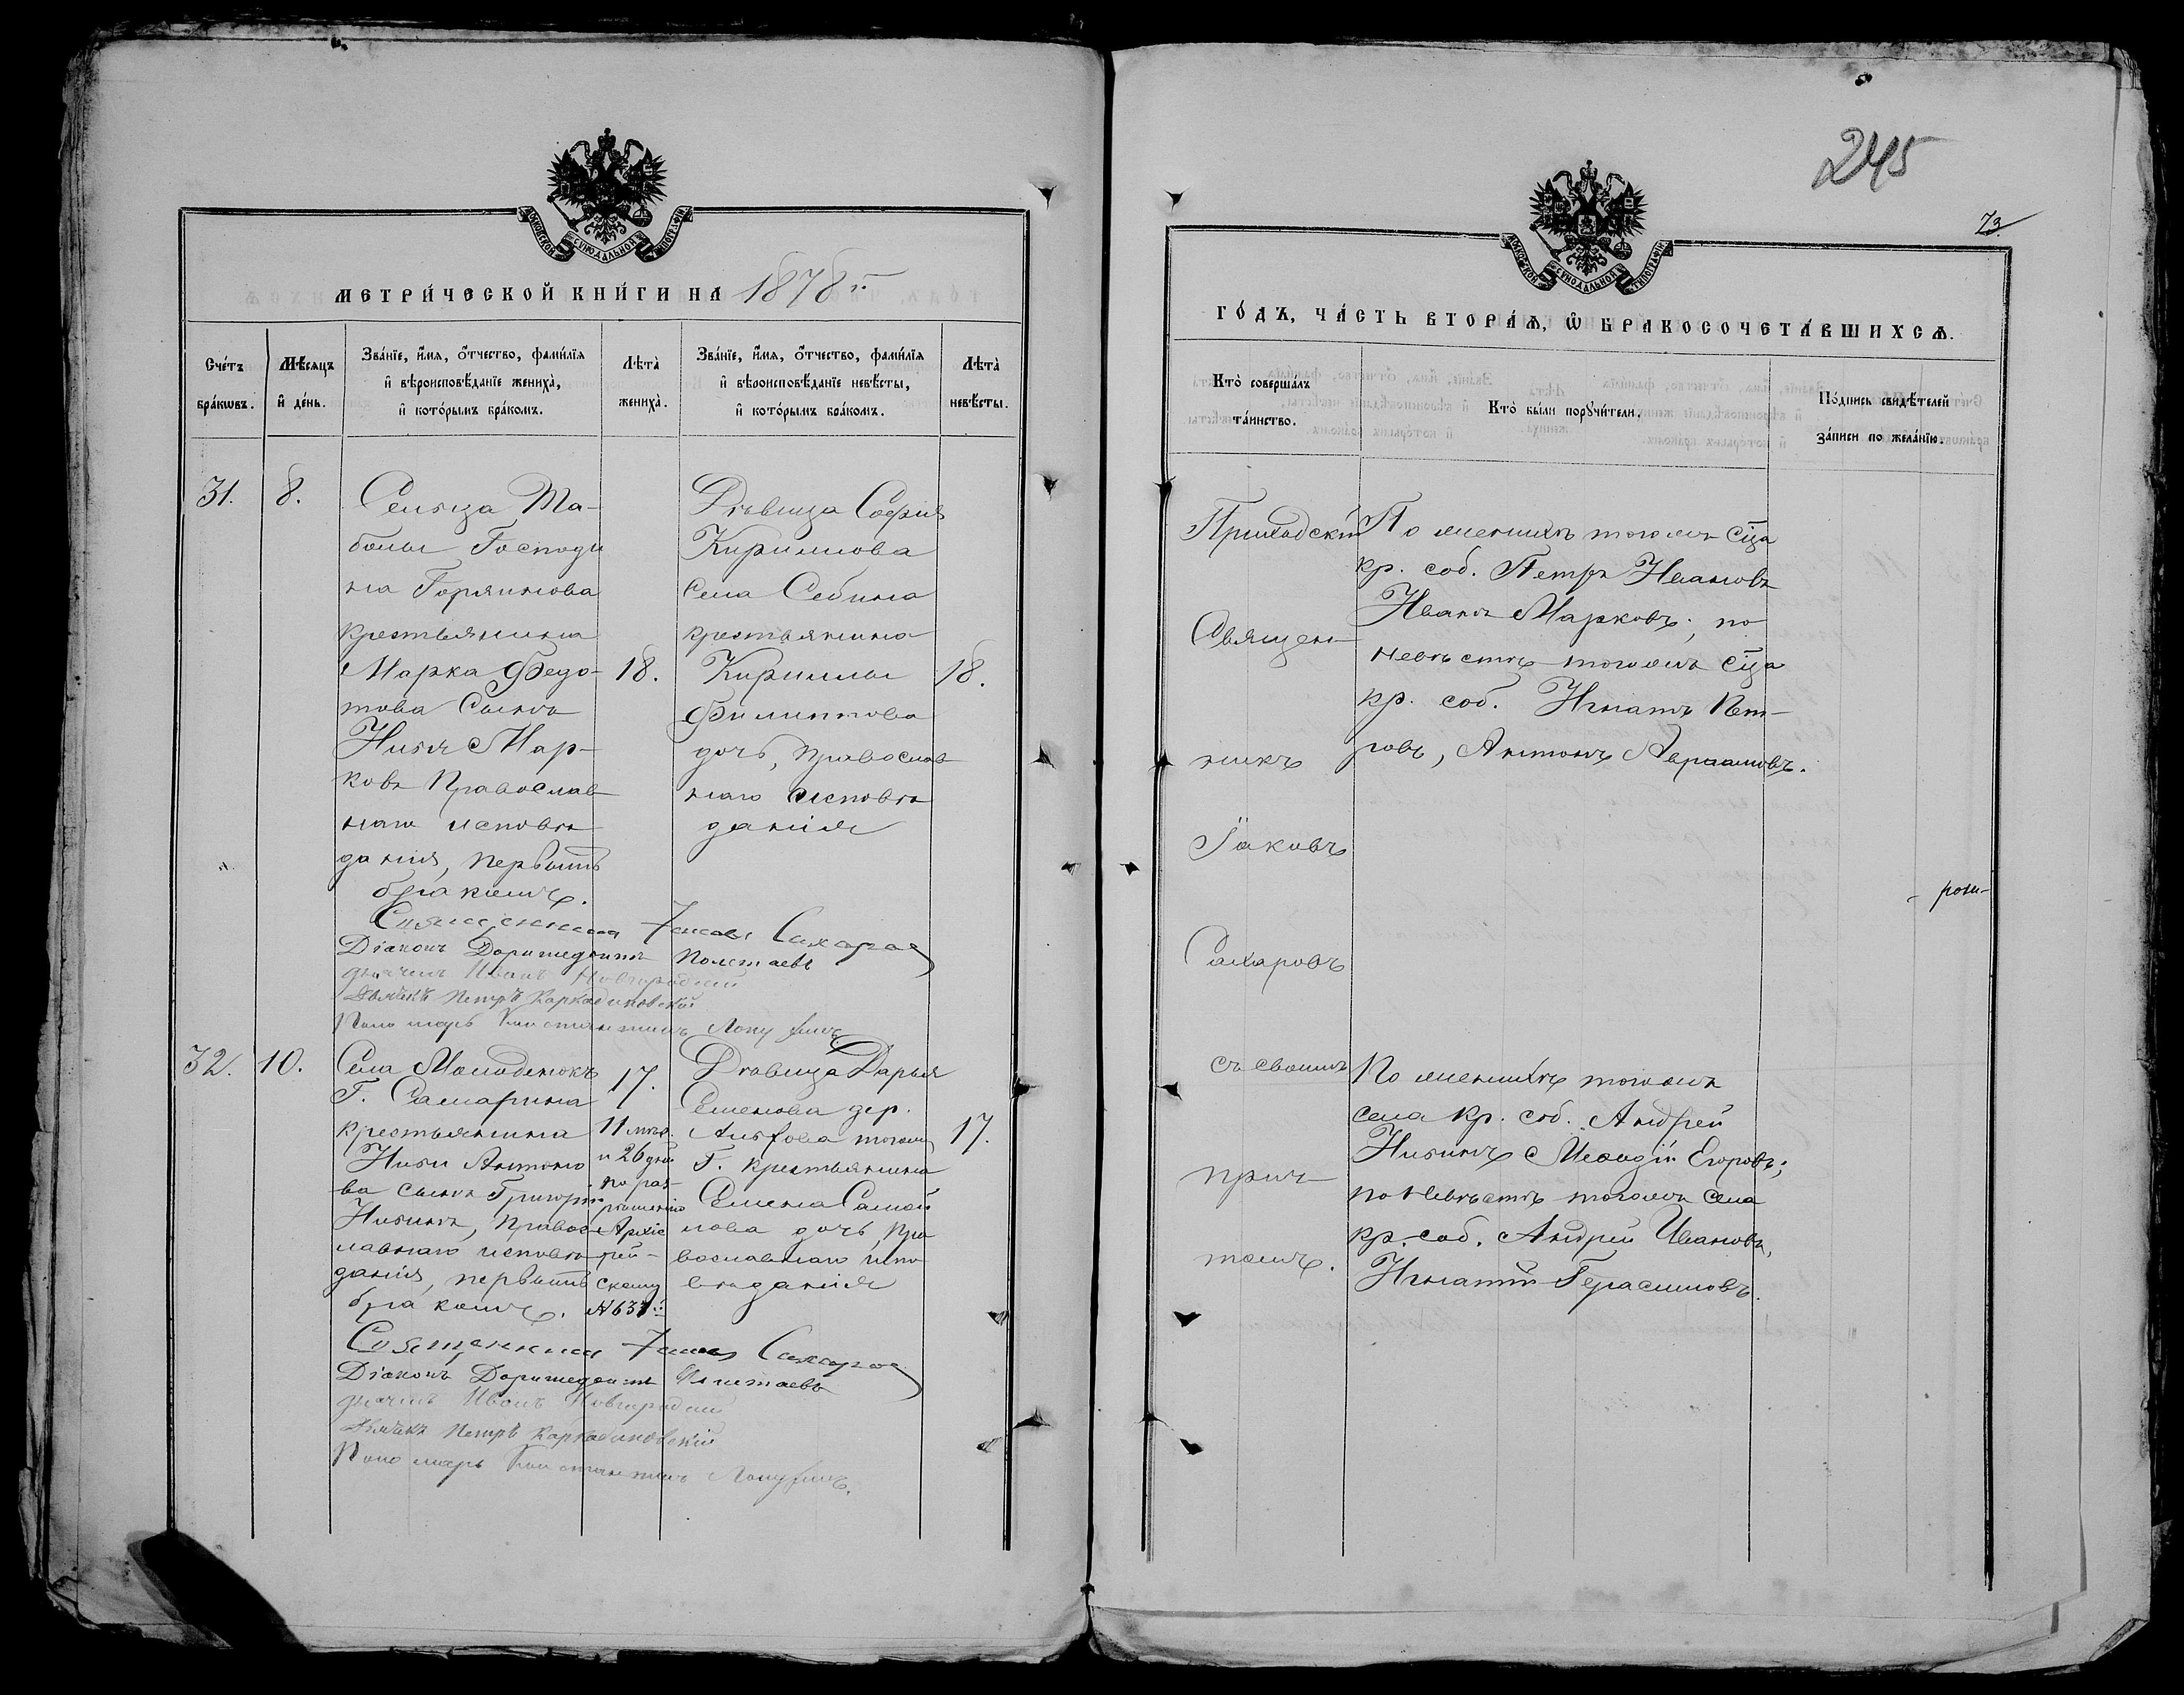 МОСКОВСКОЙ СѴНОДАЛЬНОЙ ТИПОГРАФІИ
МЕТРИ́ЧЕСКОЙ КНИ́ГИ НА 1878 г.
Сче́тъ бра́ковъ.
Мѣ́сяцъ и҆ де́нь.
Зва́нїе, и҆́мѧ, ѻ҆́тчество, фами́лїѧ и҆ вѣроисповѣ́данїе жениха̀, и҆ кото́рымъ бра́комъ.
Лѣта̀ жениха̀.
Зва́нїе, и҆́мѧ, ѻ҆́тчество, фами́лїѧ и҆ вѣроисповѣ́данїе невѣ́сты, и҆ кото́рымъ бра́комъ.
Лѣта̀ невѣ́сты.
31.
8.
Сельца Та-
болы Господи
на Горяинова
крестьянина
Марка Ѳедо-
това Сынъ
Илья Мар-
ковъ Православ
наго исповѣ
данія, первымъ
бракомъ.
18.
Дѣвица Софія
Кириллова
села Себина
крестьянина
Кириллы
Филиппова
дочь, православ
наго исповѣ
данія
18.
Священникъ Іаковъ Сахаровъ
Діаконъ Доримедонтъ Полетаевъ
дьячекъ Иванъ Новгородскій
Дьячекъ Петръ Каркадиновскій
Пономарь Константинъ Лопухинъ
32.
10.
Села Молоденокъ
Г. Самарина
крестьянина
Ильи Антоно
ва сынъ Григорій
Ильинъ, правос
лавнаго исповѣ
данія, первымъ
бракомъ.
17.
11 мѣс.
и 26 дней
по раз-
рѣшенію
Архіе
рей-
скому
№ 637
Дѣвица Дарья
Семенова дер.
тогожъ
Г. крестьянина
Семена Самой
лова дочь, пра
вославнаго испо
вѣданія
17.
Священникъ Іаковъ Сахаровъ
Діаконъ Доримедонтъ Полетаевъ
дьячекъ Иванъ Новгородскій
Дьячекъ Петръ Каркадиновскій
Пономарь Константинъ Лопухинъ.
245
73
МОСКОВСКОЙ СѴНОДАЛЬНОЙ ТИПОГРАФІИ
ГО́ДЪ, ЧА́СТЬ ВТОРА́Ѧ, Ѽ БРАКОСОЧЕТА́ВШИХСѦ.
Кто̀ соверша́лъ та́инство.
Кто̀ бы́ли порꙋчи́тели.
По́дпись свидѣ́телей за́писи по жела́нїю.
Приходскій
Священ-
никъ
Іаковъ
Сахаровъ
съ своимъ
прич-
томъ.
По женихѣ тогожъ с͠ца
кр. соб. Петръ Ивановъ
Иванъ Марковъ; по
невѣстѣ тогожъ с͠ца
кр. соб. Игнатъ Пет-
ровъ, Антонъ Авраамовъ.
По женихѣ тогожъ
села кр. соб. Андрей
Ильинъ Меѳодій Егоровъ;
по невѣстѣ тогожъ села
кр. соб. Андрей Ивановъ,
Игнатій Герасимовъ.